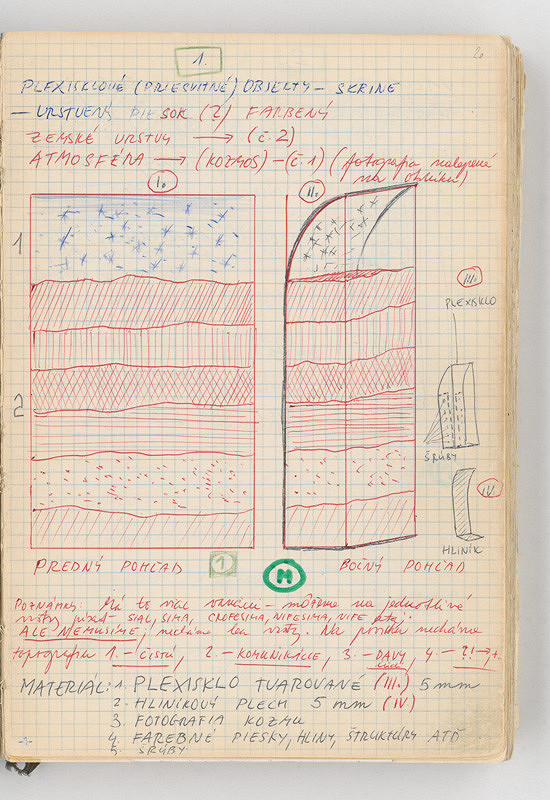 20
1.
PLEXISKLOVÉ (PRIESVITNÉ) OBJEKTY – SKRINE
– VRSTVENÝ PIESOK (?) FARBENÝ
ZEMSKÉ VRSTVY → (č. 2)
ATMOSFÉRA → (KOZMOS) – (č. 1) (fotografia nalepená
na obliníku)
I.
II.
1
III.
PLEXISKLO
2
ŠRÚBY
IV.
HLINÍK
PREDNÝ POHĽAD
1
M
BOČNÝ POHĽAD
POZNÁMKY: Má to viac variácií – môžeme na jednotlivé
vrstvy písať – SIAL, SIMA, CROFESIMA, NIFESIMA, NIFE atď.
ALE NEMUSÍME, necháme len vrstvy. Na povrchu necháme
topografiu 1. – ČISTÚ, 2. – KOMUNIKÁCIE, 3. – DAVY 4. – ?!
MATERIÁL: 1. PLEXISKLO TVAROVANÉ (III.) 5 mm
2. HLINÍKOVÝ PLECH 5 mm (IV)
3. FOTOGRAFIA KOZMU
4. FAREBNÉ PIESKY, HLINY, ŠTRUKTÚRY ATĎ
5. ŠRÚBY